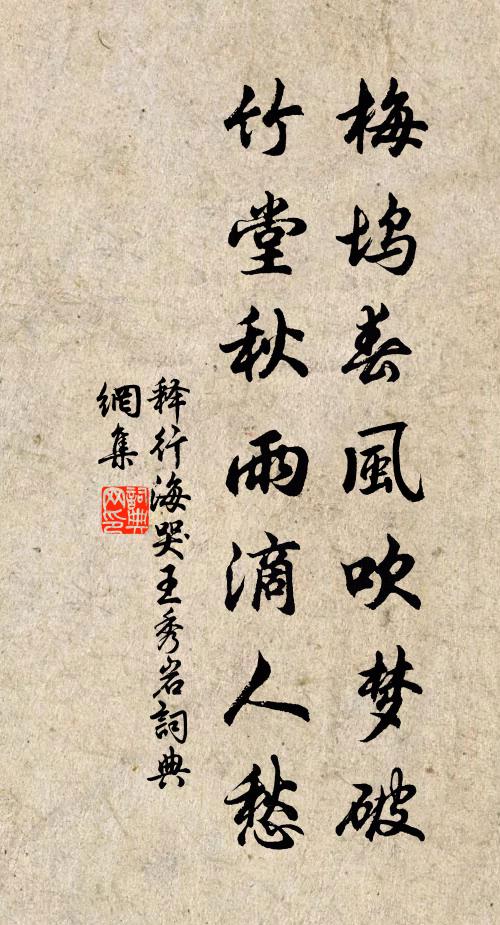 梅坞春風吹梦破
竹堂秋雨滴人愁
释行海哭王秀岩詞典
網集
詞典
网印